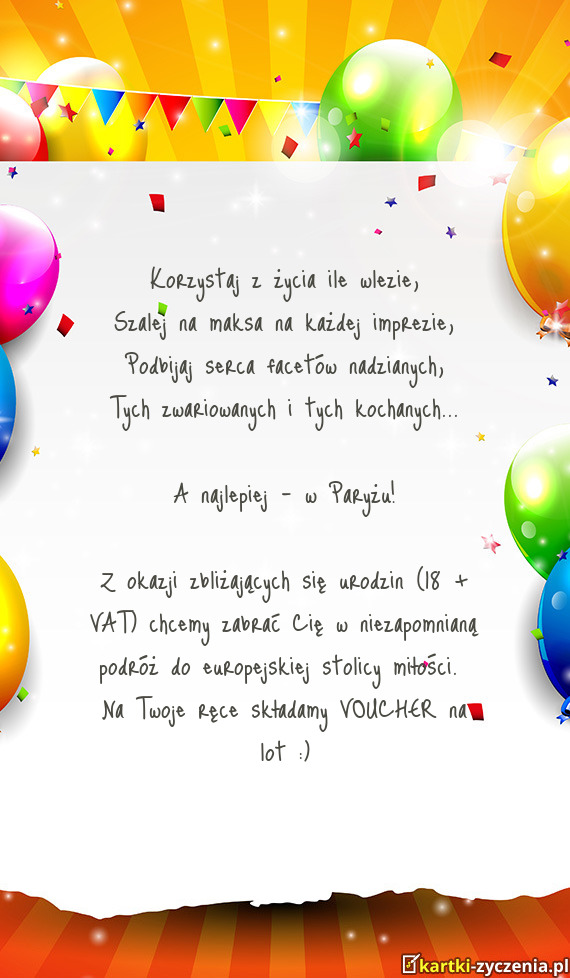 Korzystaj z życia ile wlezie,
Szalej na maksa na każdej imprezie,
Podbijaj serca facetów nadzianych,
Tych zwariowanych i tych kochanych...
A najlepiej - w Paryżu!
Z okazji zbliżających się urodzin (18 +
VAT) chcemy zabrać Cię w niezapomnianą
podróż do europejskiej stolicy miłości.
Na Twoje ręce składamy VOUCHER na
lot :)
kartki-zyczenia.pl